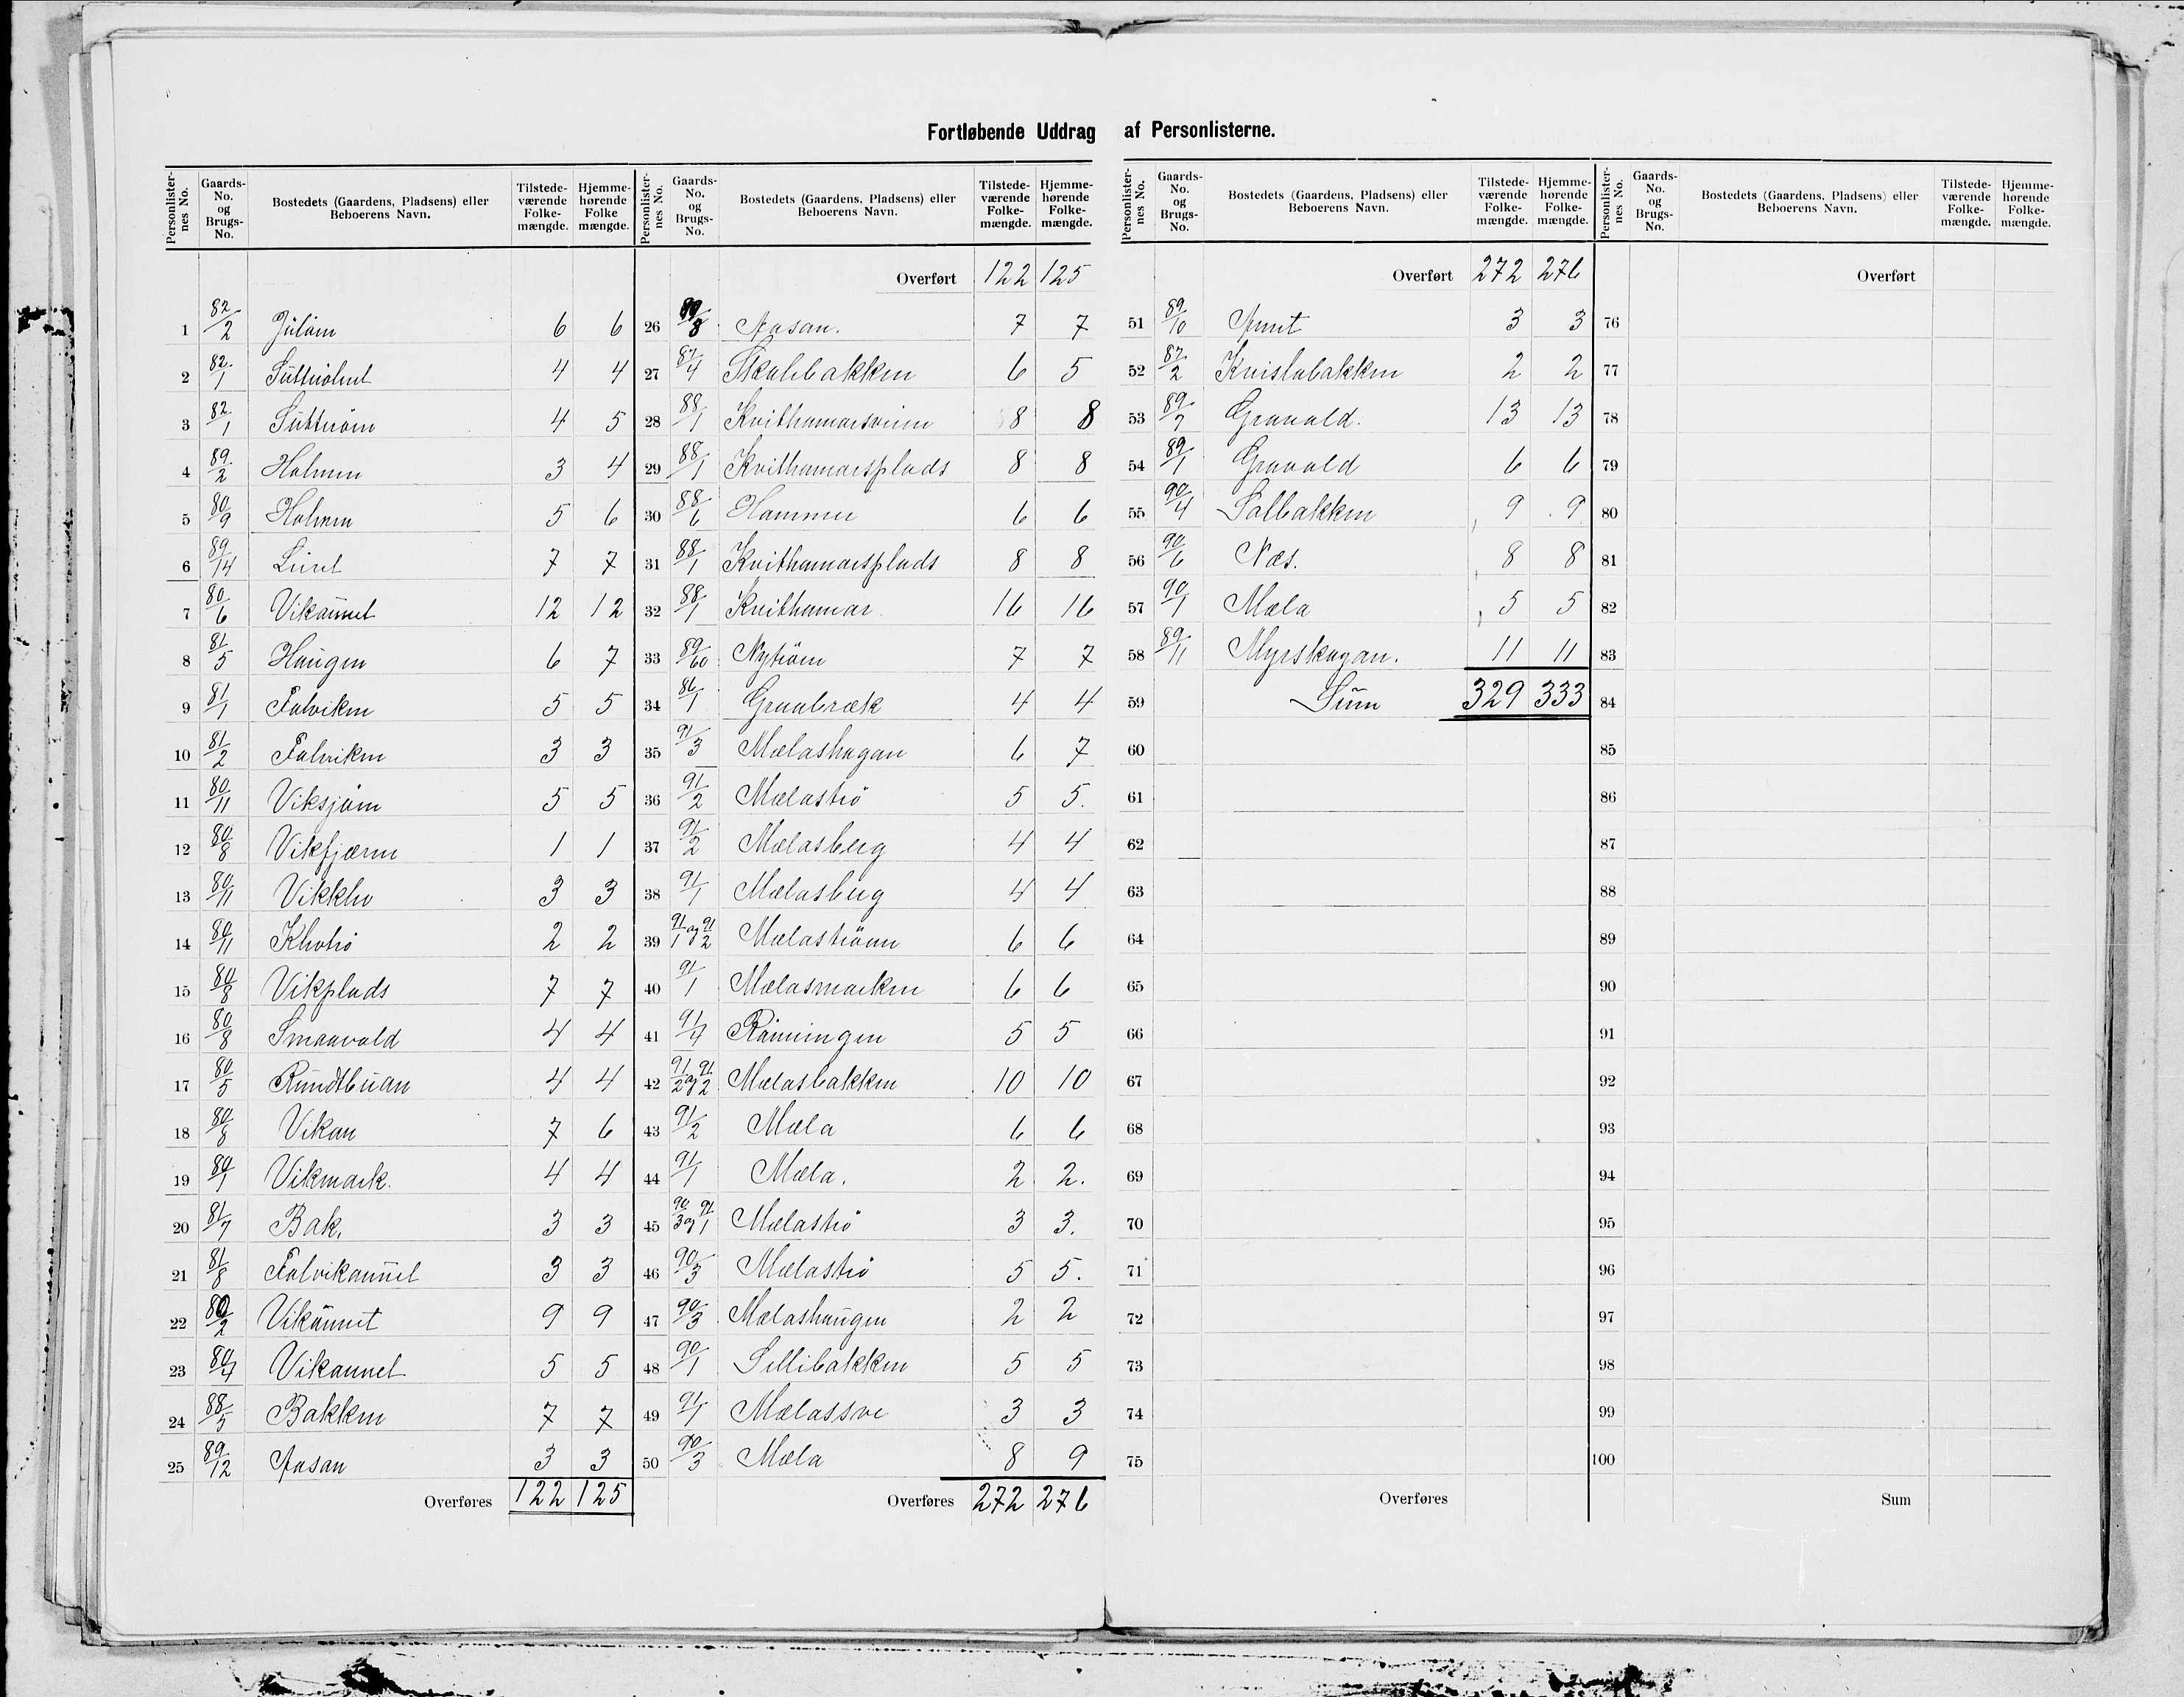 Fortløbende Uddrag af Personlisterne.
Personlisternes No. Gaards-No. og Brugs-No. Bostedets (Gaardens, Pladsens) eller Beboerens Navn. Tilstedeværende Folkemængde. Hjemmehørende Folkemængde.
1 82/2 6 6
2 82/1 4 4
3 82/1 4 5
4 89/2 Holmen 3 4
5 80/9 Holmen 5 6
6 89/14 7 7
7 80/6 Vikaunet 12 12
8 81/5 Haugen 6 7
9 81/1 Falviken 5 5
10 81/2 Falviken 3 3
11 80/11 Viksjøen 5 5
12 80/8 Vikfjæren 1 1
13 80/11 Vikklev 3 3
14 80/11 2 2
15 80/8 Vikplads 7 7
16 80/8 Smaavold 4 4
17 80/5 Rundtbuan 4 4
18 80/8 Vikan 7 6
19 80/1 Vikmark. 4 4
20 81/7 Bak. 3 3
21 81/8 Falvikaunet 3 3
22 80/2 Vikaunet 9 9
23 80/4 Vikaunet 5 5
24 88/5 Bakken 7 7
25 89/12 Aasan 3 3
Overføres 122 125
Overført 122 125
26 Aasan. 7 7
27 87/4 Skalebakken 6 5
28 88/1 8 8
29 88/1 Kvithamarsplads 8 8
30 88/6 Hammer 6 6
31 88/1 Kvithamarsplads 8 8
32 88/1 Kvithamar. 16 16
33 Nytrøen 7 7
34 86/1 Graabræk 4 4
35 91/3 Mælashagan 6 7
36 91/2 Mælastrø 5 5.
37 91/2 Mælasberg 4 4
38 91/1 Mælasberg 4 4
39 91/1 og 91/2 Mælastrøen 6 6
40 91/1 Mælasmarken 6 6
41 91/4 Rønningen 5 5
42 91/2 og 91/2 Mælasbakken 10 10
43 91/2 Mæla 6 6
44 91/1 Mæla. 2 2.
45 90/3 og 91/1 Mælastrø 3 3.
46 90/3 Mælastrø 5 5.
47 90/3 Mælashaugen 2 2
48 90/1 Sellibakken 5 5
49 91/1 Mælassve 3 3
50 90/3 Mæla 8 9
Overføres 272 276
Overført 272 276
51 89/10 Aunet 3 3
52 87/2 Kvislabakken 2 2
53 89/7 Graavold. 13 13
54 89/1 Graavold 6 6
55 90/4 Solbakken 9 9
56 90/6 Næs. 8 8
57 90/1 Mæla 5 5
58 89/11 Myrskagan. 11 11
59 Sum 329 333
60
61
62
63
64
65
66
67
68
69
70
71
72
73
74
75
Overføres
Overført
76
77
78
79
80
81
82
83
84
85
86
87
88
89
90
91
92
93
94
95
96
97
98
99
100
Sum